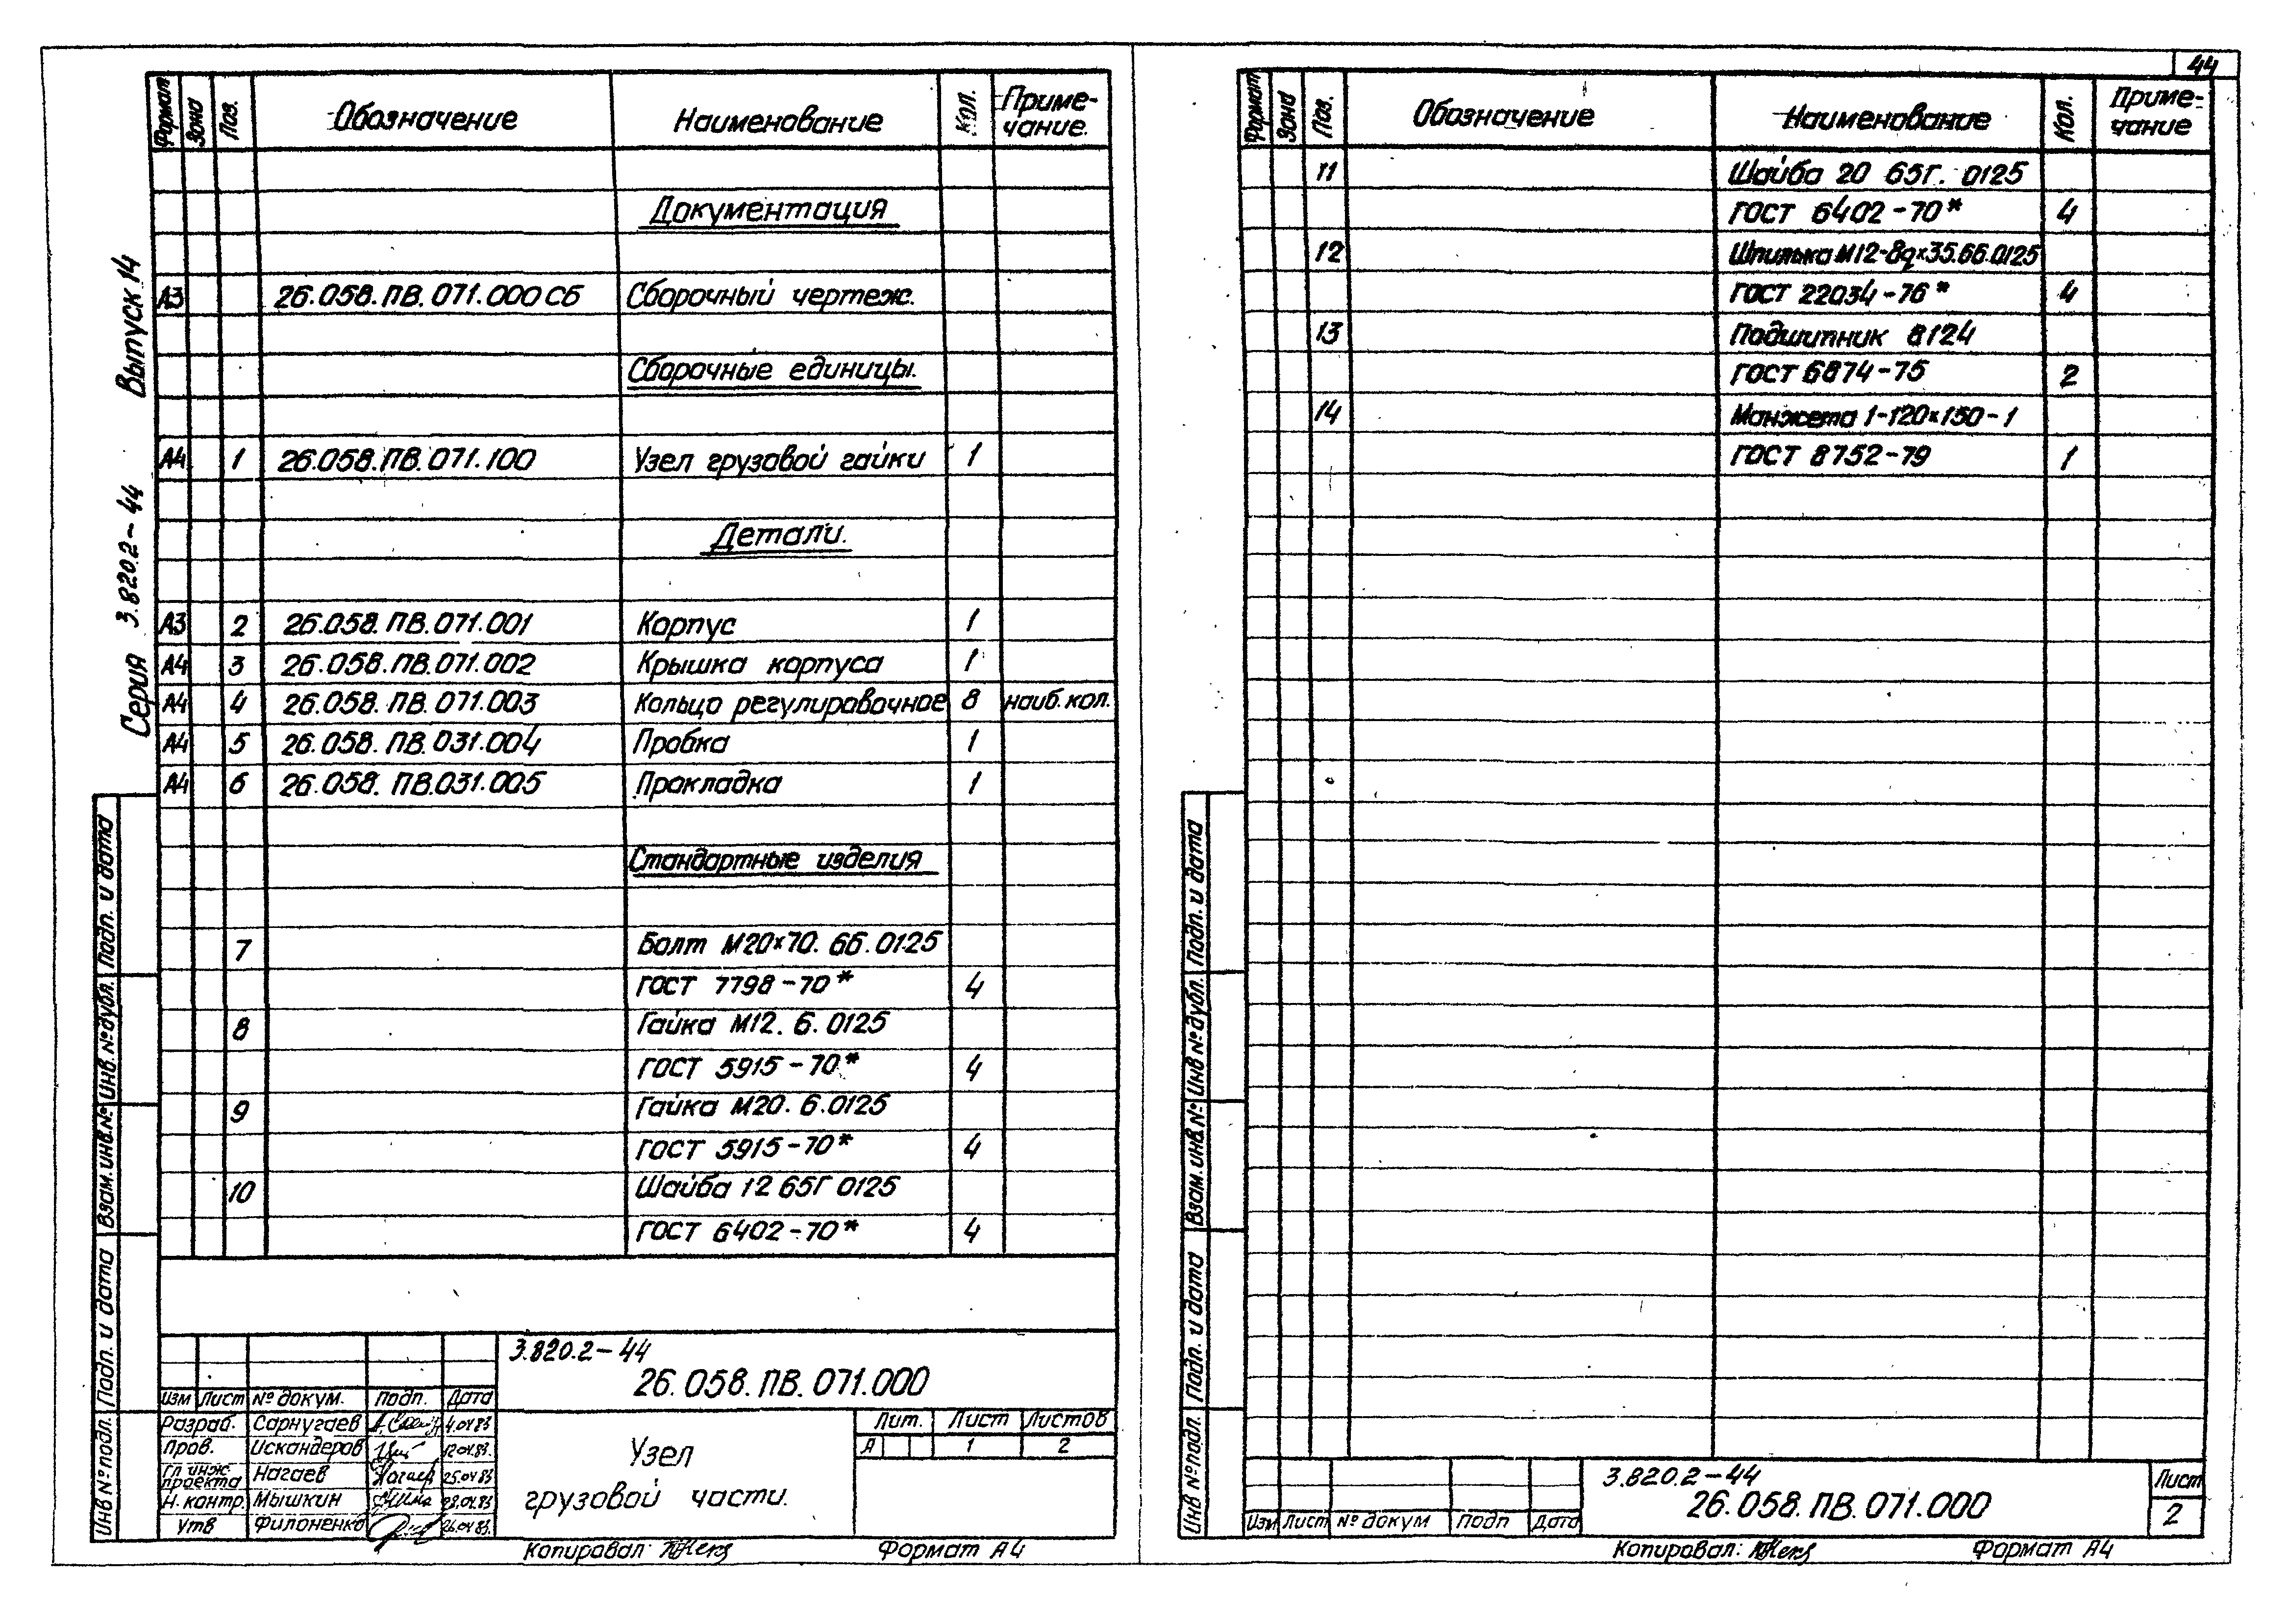 44
Серия 3.820.2-44 Выпуск 14
Формат Зона Поз. Обозначение Наименование Кол. Приме-
чание.
Документация
А3 26.058.ПВ.071.000 СБ Сборочный чертеж.
Сборочные единицы.
А4 1 26.058.ПВ.071.100 Узел грузовой гайки 1
Детали.
А3 2 26.058.ПВ.071.001 Корпус 1
А4 3 26.058.ПВ.071.002 Крышка корпуса 1
А4 4 26.058.ПВ.071.003 Кольцо регулировочное 8 наиб. кол.
А4 5 26.058.ПВ.031.004 Пробка 1
А4 6 26.058.ПВ.031.005 Прокладка 1
Стандартные изделия
7 Болт М20×70. 66. 0125
ГОСТ 7798-70* 4
8 Гайка М12. 6. 0125
ГОСТ 5915-70* 4
9 Гайка М20. 6. 0125
ГОСТ 5915-70* 4
10 Шайба 12 65Г 0125
ГОСТ 6402-70* 4
3.820.2-44
26.058.ПВ.071.000
Изм Лист № докум. Подп. Дата
Разраб. Сарнугаев 4.04.83
Пров. Искандеров 12.04.83.
Гл инж.
проекта Нагаев Нагаев 25.04.83
Н. контр. Мышкин
Утв Филоненко 26.04.83.
Узел
грузовой части.
Лит. Лист Листов
А 1 2
Копировал: Формат А4
Инв № подл. Подп. и дата Взам. инв. № Инв. № дубл. Подп. и дата
Формат Зона Поз. Обозначение Наименование Кол. Приме-
чание
11 Шайба 20 65Г. 0125
ГОСТ 6402-70* 4
12 Шпилька М12-8g×35.66.0125
ГОСТ 22034-76* 4
13 Подшипник 8124
ГОСТ 6874-75 2
14 Манжета 1-120×150-1
ГОСТ 8752-79 1
3.820.2-44
26.058.ПВ.071.000
Лист
2
Изм Лист № докум Подп Дата
Копировал: Формат А4
Инв № подл. Подп. и дата Взам. инв. № Инв № дубл. Подп. и дата